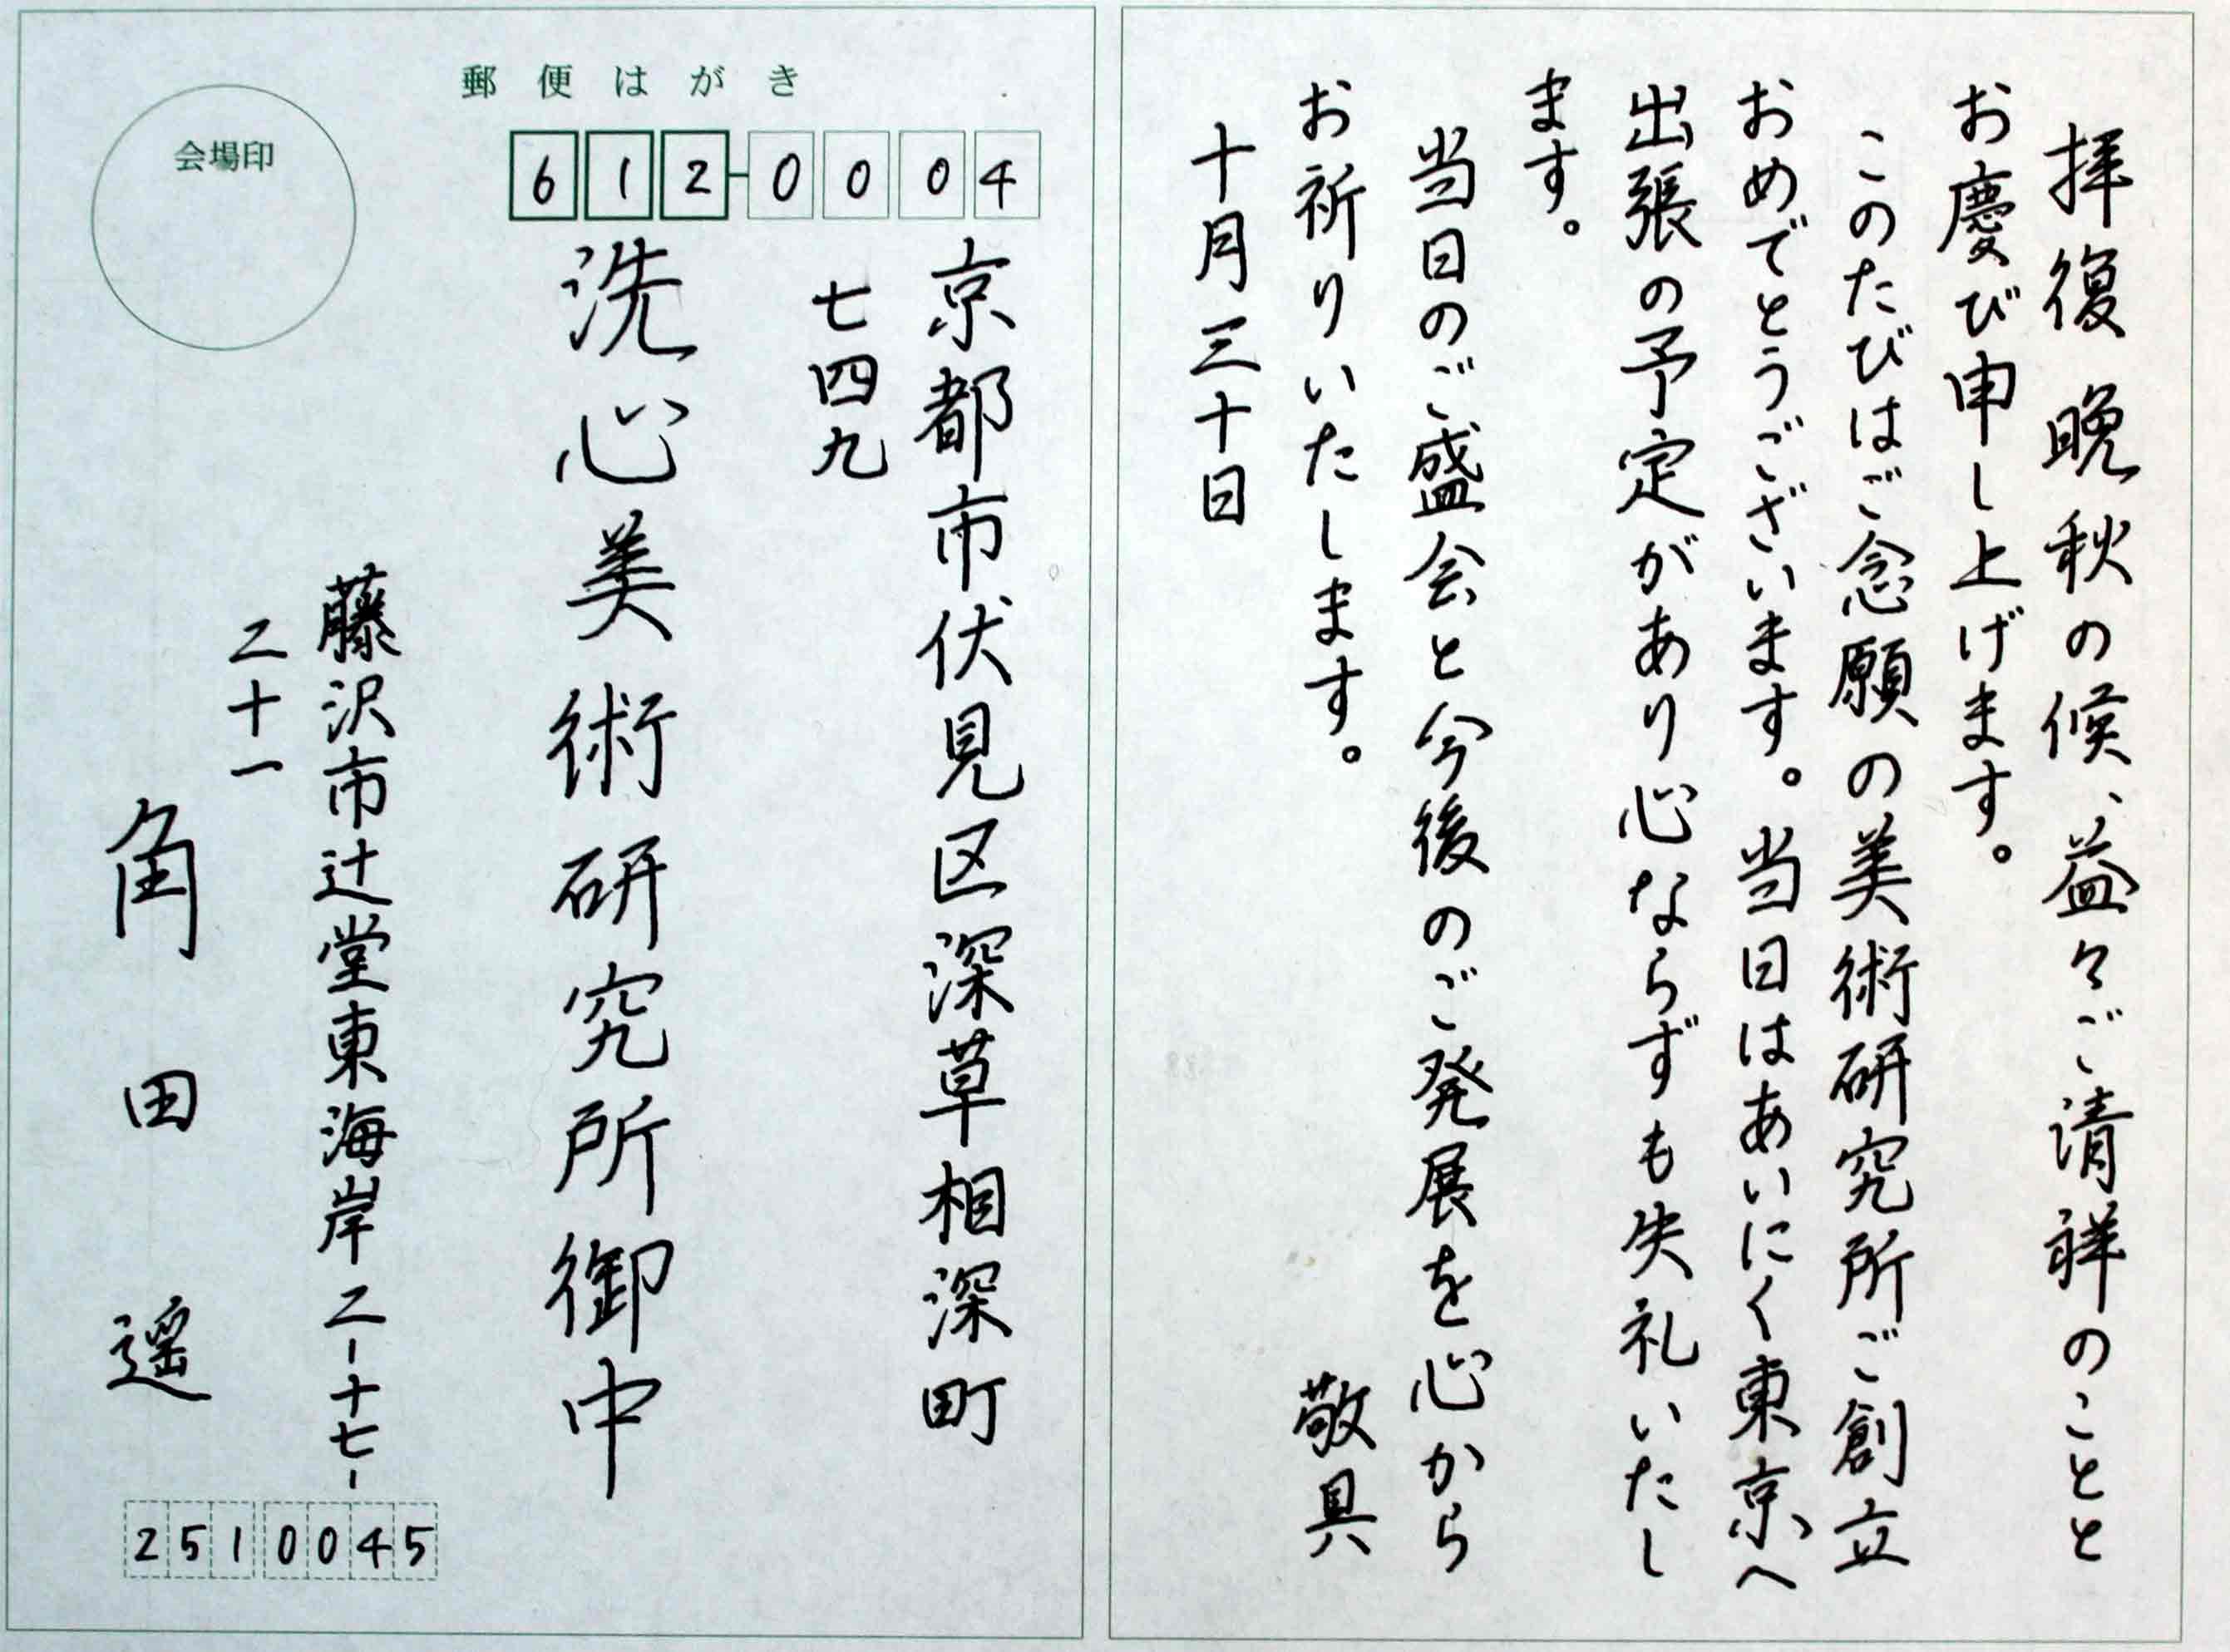 拝復 晩秋の候、益々ご清祥のことと
お慶び申し上げます。
このたびはご念願の美術研究所ご創立
おめでとうございます。当日はあいにく東京へ
出張の予定があり心ならずも失礼いたし
ます。
当日のご盛会と今後のご発展を心から
お祈りいたします。
敬具
十月三十日
郵便はがき
会場印
612-0004
京都市伏見区深草相深町
七四九
洗心美術研究所御中
藤沢市辻堂東海岸二-十七-
二十一
角田 遥
2510045